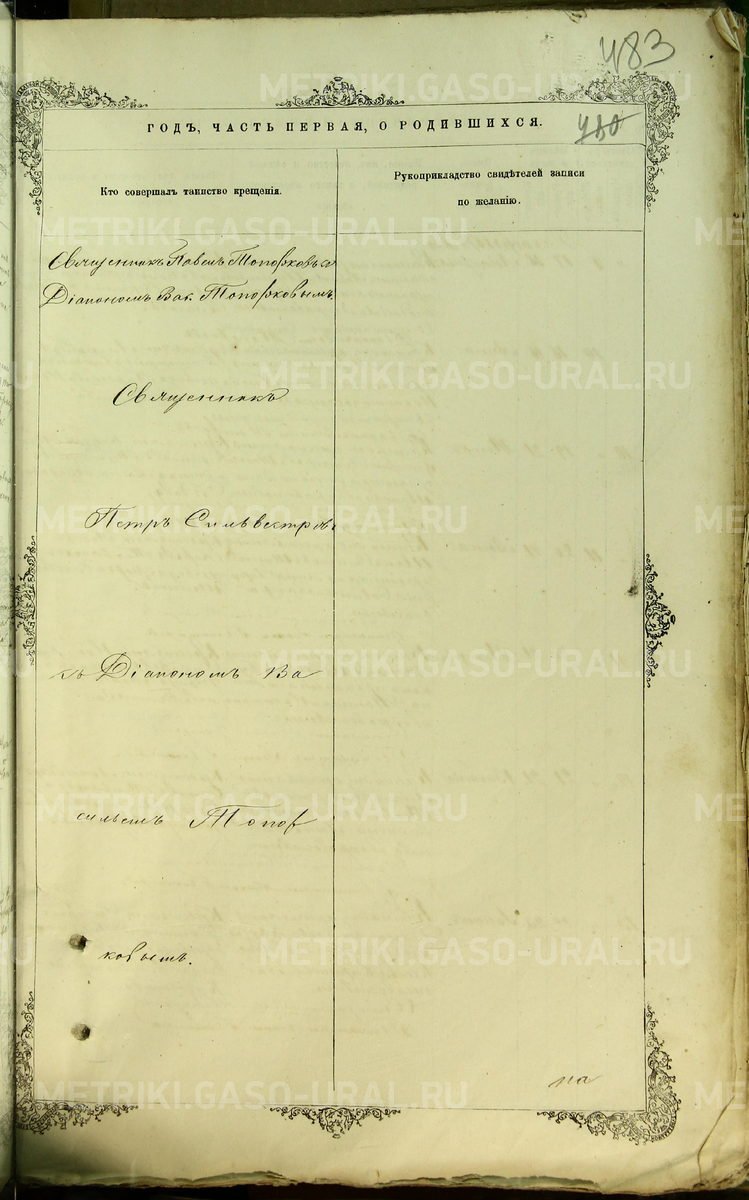 483
480
ГОДЪ, ЧАСТЬ ПЕРВАЯ, О РОДИВШИХСЯ.
Кто совершалъ таинство крещенія.
Рукоприкладство свидѣтелей записи
по желанію.
Священникъ Павелъ Топорковъ съ
Діакономъ Вас. Топорковымъ.
Священникъ
Петръ Сильвестров
съ Діакономъ Ва
сильемъ Топор
ковымъ.
METRIKI.GASO-URAL.RU